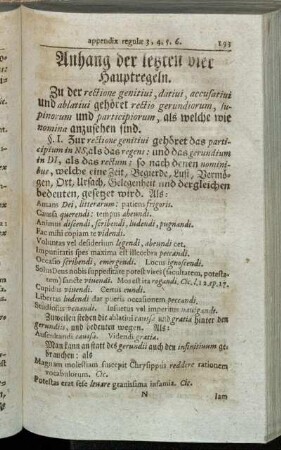 appendix regulæ 3. 4. 5. 6. 193
Anhang der letzten vier
Hauptregeln.
Zu der rectione genitivi, dativi, accusativi
und ablativi gehöret rectio gerundiorum, su-
pinorum und participiorum, als welche wie
nomina anzusehen sind.
§. I. Zur rectione genitivi gehöret das par-
ticipium in NS, als das regens: und das gerundium
in DI, als das rectum: so nach denen nomini-
bus, welche eine Zeit, Begierde, Lust, Vermö-
gen, Ort, Ursach, Gelegenheit und dergleichen
bedeuten, gesetzt wird. Als:
Amans Dei, litterarum: patiens frigoris.
Caussa querendi: tempus abeundi.
Animus discendi, scribendi, ludendi, pugnandi.
Fac mihi copiam te videndi.
Voluntas vel desiderium legendi, abeundi cet.
Impunitatis spes maxima est illecebra peccandi.
Occasio scribendi, emergendi. Locus ignoscendi.
Solus Deus nobis suppeditare potest vires (facultatem, potesta-
tem) sancte vivendi. Mora est ira rogandi. Cic.
Cupidus vivendi. Certus eundi.
Libertas ludendi dat pueris occasionem peccandi.
Studiosus venandi. Insuetus vel imperitus navigandi.
Zuweilen stehen die ablativi caussa und gratia hinter den
gerundiis, und bedeuten wegen. Als:
Auferendi caussa. Videndi gratia.
Man kann an statt des gerundii auch den infinitivum ge-
brauchen: als
Magnam molestiam suscepit Chrysippus reddere rationem
vocabulorum. Cic.
Potestas erat sese levare gravissima infamia. Cic.
N Iam